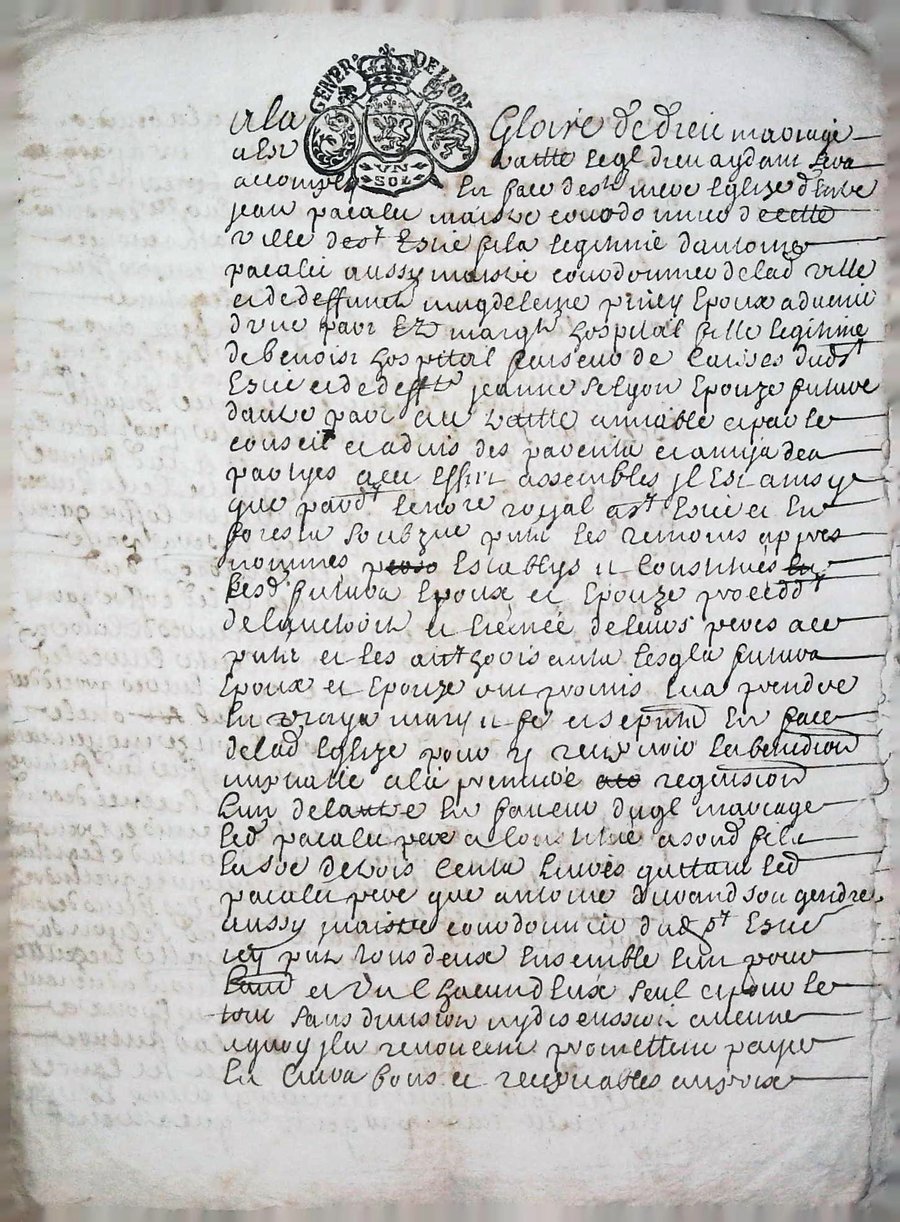 GENER. DE LION
VN
SOL
A la Gloire de dieu mariage
a est traitté legl dieu aydant sera
accomply En face de ste mere Eglize Entre
jean pacalic maistre cordonnier de cette
ville de st Estie fils legitime d'antoine
pacalic aussy maistre cordonnier de lad ville
et de deffunte magdeleine Epoux advenir
d'une part Et margte hospital fille legitime
de benoist hospital faiseur de Caisses dud st
Estie et de deffte jeanne Epouze future
dautre part au traitté amiable et par le
conseil et advis des parents et amis des
partyes a cet Effect assemblés il Est ainsy
que pard le nore royal a st Estie et En
forests soubzne et pnts les temoins apres
nommés Establys et Constitués
Lesd futurs Epoux et Epouze proced
de lauthorité et licence de leurs peres icy
pnts et les authorisants lesqls futurs
Epoux et Epouze ont promis se prendre
En vrays mary et fe et se En face
de lad Eglize pour y recepvoir la benediction
nuptialle a la premiere requisition
Lun de lautre En faveur duql mariage
led pacalic pere a Constitué a sond fils
la soe de trois Cents Livres led
pacalic pere que antoine durand son gendre
aussy maistre cordonnier dud st Estie
icy pnt tous deux Ensemble Lun pour
Lautre et Un chacun d'Eux seul et pour le
tout sans division ny discussion aucune
a quoy ils renoncent promettent payer
En Livres bons et